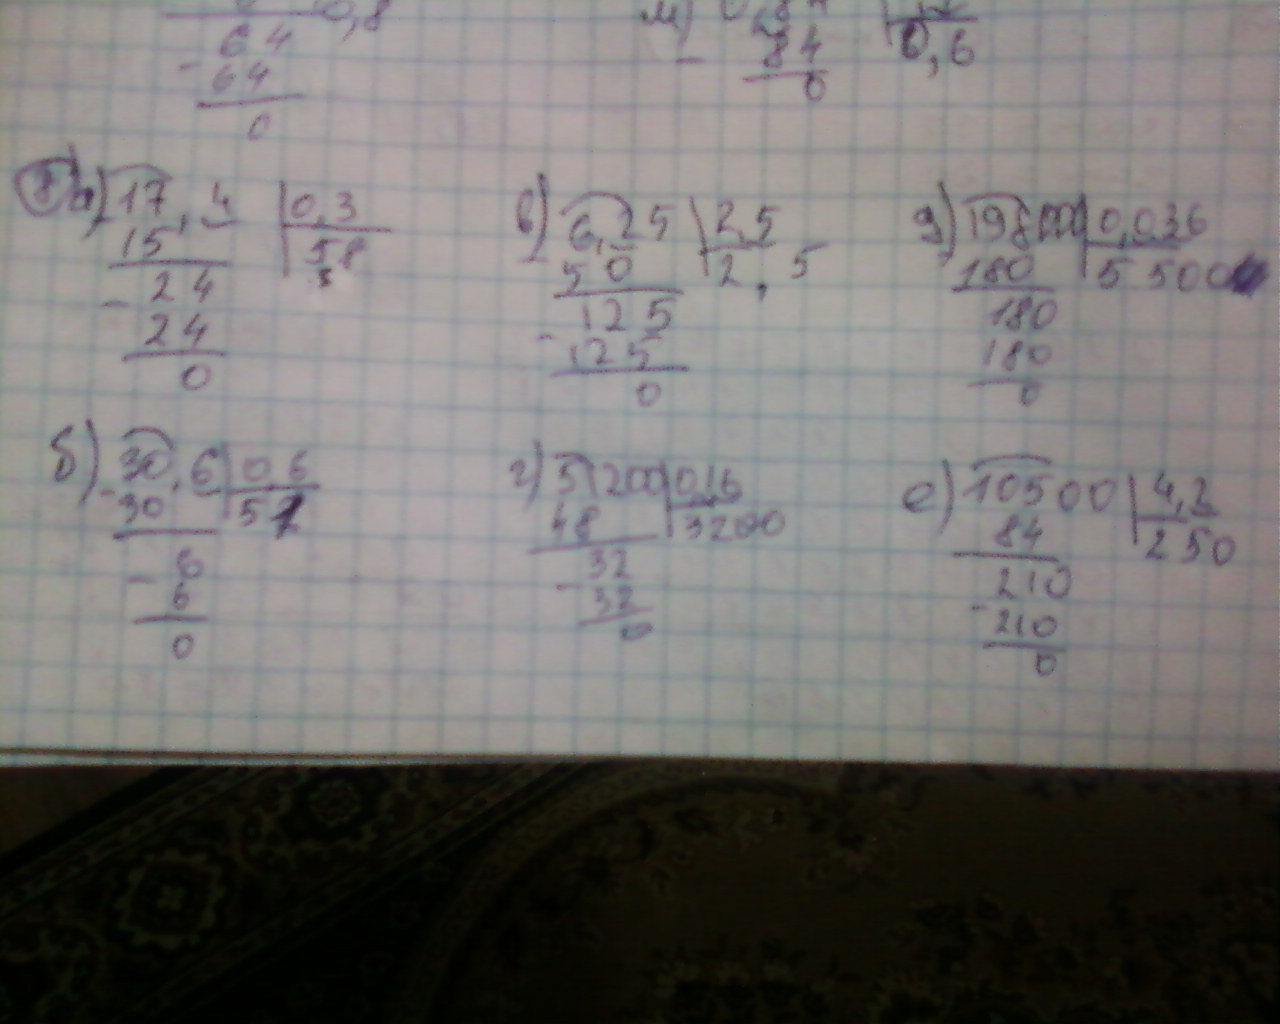 0,8
64
- 64
0
м)
- 84 0,6
0
а) 17,4 0,3
15 58
- 24
24
0
в) 6,25 2,5
- 50 2,5
125
- 125
0
д) 198000 0,036
180 5500
180
180
0
б) 30,6 0 6
- 30 51
- 6
6
0
г) 51200 0,16
48 3200
- 32
32
0
е) 10500 4,2
84 250
210
- 210
0